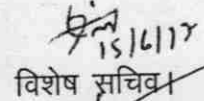 15/6/12
विशेष सचिव।